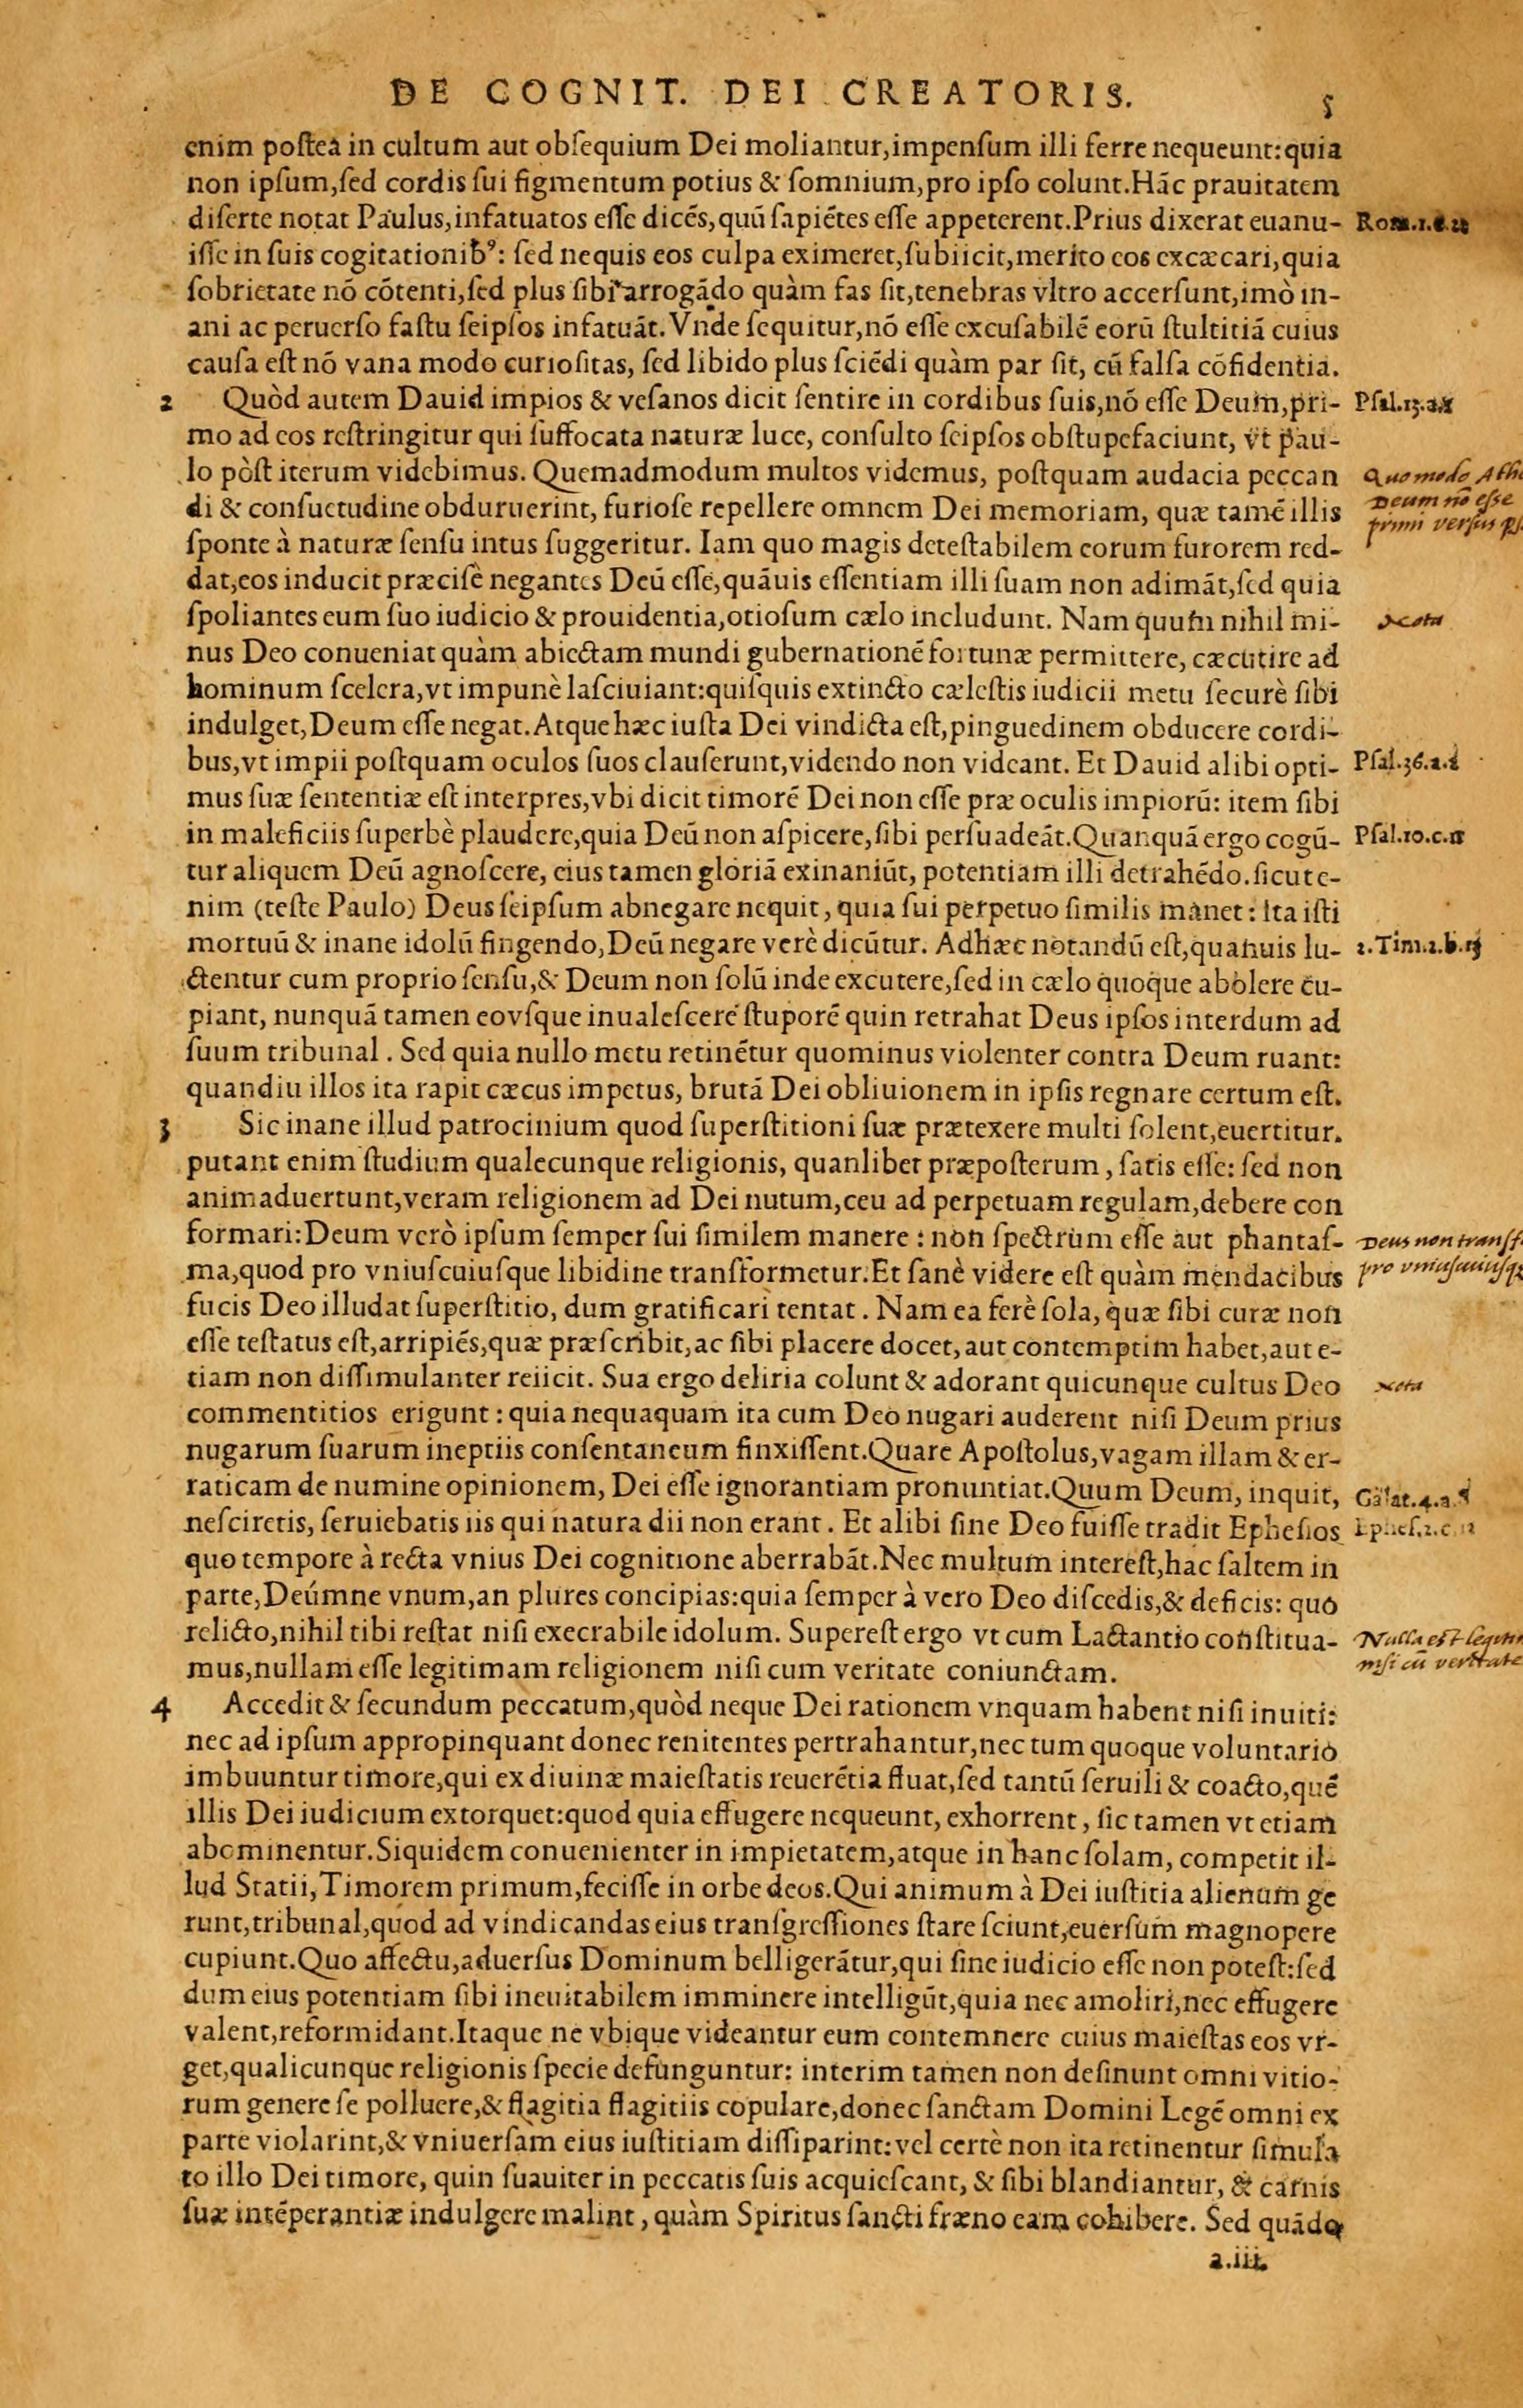 DE COGNIT. DEI CREATORIS. 5
enim postea in cultum aut obſequium Dei moliantur,impenſum illi ferre nequeunt:quia
non ipſum,ſed cordis ſui figmentum potius & ſomnium,pro ipſo colunt.Hāc prauitatem
diſerte notat Paulus,infatuatos eſſe dicēs,quū ſapiētes eſſe appeterent.Prius dixerat euanu-
Rom.1.c.22
iſſe in ſuis cogitationibꝰ: ſed nequis eos culpa eximeret,ſubiicit,merito eos excæcari,quia
ſobrietate nō cōtenti,ſed plus ſibi arrogādo quàm fas ſit,tenebras vltro accerſunt,imò in-
ani ac peruerſo faſtu ſeipſos infatuāt.Vnde ſequitur,nō eſſe excuſabilē eorū ſtultitiā cuius
cauſa eſt nō vana modo curioſitas, ſed libido plus ſciēdi quàm par ſit, cū falſa cōfidentia.
2 Quòd autem Dauid impios & veſanos dicit ſentire in cordibus ſuis,nō eſſe Deum,pri-
Pſal.15.a.1
mo ad eos reſtringitur qui ſuffocata naturæ luce, conſulto ſeipſos obſtupefaciunt, vt pau-
lo pòſt iterum videbimus. Quemadmodum multos videmus, poſtquam audacia peccan
Quomodo Athe
di & conſuetudine obduruerint, furioſe repellere omnem Dei memoriam, quæ tamē illis
Deum nō eſſe
primi versus
ſponte à naturæ ſenſu intus ſuggeritur. Iam quo magis deteſtabilem eorum furorem red-
dat,eos inducit præciſè negantes Deū eſſe,quāuis eſſentiam illi ſuam non adimāt,ſed quia
ſpoliantes eum ſuo iudicio & prouidentia,otioſum cælo includunt. Nam quum nihil mi-
Nota
nus Deo conueniat quàm abiectam mundi gubernationē fortunæ permittere, cæcutire ad
hominum ſcelera,vt impunè laſciuiant:quiſquis extincto cæleſtis iudicii metu ſecurè ſibi
indulget,Deum eſſe negat.Atque hæc iuſta Dei vindicta eſt,pinguedinem obducere cordi-
bus,vt impii poſtquam oculos ſuos clauſerunt,videndo non videant. Et Dauid alibi opti-
Pſal.36.a.2
mus ſuæ ſententiæ eſt interpres,vbi dicit timorē Dei non eſſe præ oculis impiorū: item ſibi
in maleficiis ſuperbè plaudere,quia Deū non aſpicere,ſibi perſuadeāt.Quanquā ergo cogū-
Pſal.10.c.11
tur aliquem Deū agnoſcere, eius tamen gloriā exinaniūt, potentiam illi detrahēdo.ſicut e-
nim (teſte Paulo) Deus ſeipſum abnegare nequit, quia ſui perpetuo ſimilis manet: ita iſti
mortuū & inane idolū fingendo,Deū negare verè dicūtur. Adhæc notandū eſt,quanuis lu-
2.Tim.2.b.13
ctentur cum proprio ſenſu,& Deum non ſolū inde excutere,ſed in cælo quoque abolere cu-
piant, nunquā tamen eovſque inualeſcere ſtuporē quin retrahat Deus ipſos interdum ad
ſuum tribunal. Sed quia nullo metu retinētur quominus violenter contra Deum ruant:
quandiu illos ita rapit cæcus impetus, brutā Dei obliuionem in ipſis regnare certum eſt.
3 Sic inane illud patrocinium quod ſuperſtitioni ſuæ prætexere multi ſolent,euertitur.
putant enim ſtudium qualecunque religionis, quanlibet præpoſterum, ſatis eſſe: ſed non
animaduertunt,veram religionem ad Dei nutum,ceu ad perpetuam regulam,debere con
formari:Deum verò ipſum ſemper ſui ſimilem manere: non ſpectrum eſſe aut phantaſ-
Deus non tranſf
ma,quod pro vniuſcuiuſque libidine transformetur.Et ſanè videre eſt quàm mendacibus
pro vniuſcuiuſq
fucis Deo illudat ſuperſtitio, dum gratificari tentat. Nam ea ferè ſola, quæ ſibi curæ non
eſſe teſtatus eſt,arripiēs,quæ præſcribit,ac ſibi placere docet, aut contemptim habet,aut e-
tiam non diſſimulanter reiicit. Sua ergo deliria colunt & adorant quicunque cultus Deo
Nota
commentitios erigunt: quia nequaquam ita cum Deo nugari auderent niſi Deum prius
nugarum ſuarum ineptiis conſentaneum finxiſſent.Quare Apoſtolus,vagam illam & er-
raticam de numine opinionem, Dei eſſe ignorantiam pronuntiat.Quum Deum, inquit,
Galat.4.a.
neſciretis, ſeruiebatis iis qui natura dii non erant. Et alibi ſine Deo fuiſſe tradit Epheſios
Epheſ.2.c.12
quo tempore à recta vnius Dei cognitione aberrabāt.Nec multum intereſt,hac ſaltem in
parte,Deúmne vnum,an plures concipias:quia ſemper à vero Deo diſcedis,& deficis: quo
relicto,nihil tibi reſtat niſi execrabile idolum. Supereſt ergo vt cum Lactantio conſtitua-
Nulla eſt legitim
mus,nullam eſſe legitimam religionem niſi cum veritate coniunctam.
niſi cū veritate
4 Accedit & ſecundum peccatum,quòd neque Dei rationem vnquam habent niſi inuiti:
nec ad ipſum appropinquant donec renitentes pertrahantur,nec tum quoque voluntario
imbuuntur timore,qui ex diuinæ maieſtatis reuerētia fluat,ſed tantū ſeruili & coacto,quē
illis Dei iudicium extorquet:quod quia effugere nequeunt, exhorrent, ſic tamen vt etiam
abominentur.Siquidem conuenienter in impietatem,atque in hanc ſolam, competit il-
lud Statii,Timorem primum,feciſſe in orbe deos.Qui animum à Dei iuſtitia alienum ge
runt,tribunal,quod ad vindicandas eius tranſgreſſiones ſtare ſciunt,euerſum magnopere
cupiunt.Quo affectu,aduerſus Dominum belligerātur,qui ſine iudicio eſſe non poteſt:ſed
dum eius potentiam ſibi ineuitabilem imminere intelligūt,quia nec amoliri,nec effugere
valent,reformidant.Itaque ne vbique videantur eum contemnere cuius maieſtas eos vr-
get,qualicunque religionis ſpecie defunguntur: interim tamen non deſinunt omni vitio-
rum genere ſe polluere,& flagitia flagitiis copulare,donec ſanctam Domini Legē omni ex
parte violarint,& vniuerſam eius iuſtitiam diſſiparint:vel certè non ita retinentur ſimula
to illo Dei timore, quin ſuauiter in peccatis ſuis acquieſcant, & ſibi blandiantur, & carnis
ſuæ intēperantiæ indulgere malint, quàm Spiritus ſancti fræno eam cohibere. Sed quādo
a.iii.